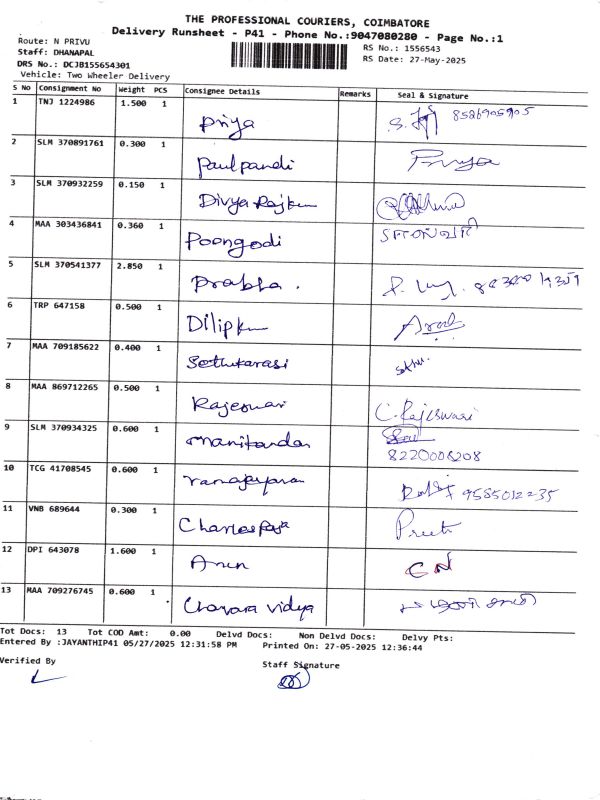 THE PROFESSIONAL COURIERS, COIMBATORE
Delivery Runsheet - P41 - Phone No.:9047080280 - Page No.:1
Route: N PRIVU
RS No.: 1556543
Staff: DHANAPAL
RS Date: 27-May-2025
DRS No.: DCJB155654301
Vehicle: Two Wheeler Delivery
S No Consignment No Weight PCS Consignee Details Remarks Seal & Signature
1 TNJ 1224986 1.500 1 Priya 8526905905
2 SLM 370891761 0.300 1 Paulpandi Priya
3 SLM 370932259 0.150 1 Divya Rajkum
4 MAA 303436841 0.360 1 Poongodi
5 SLM 370541377 2.850 1 Prabha.
6 TRP 647158 0.500 1 Dilipkum
7 MAA 709185622 0.400 1 Sethukarasi
8 MAA 869712265 0.500 1 Rajeswari C. Rajeswari
9 SLM 370934325 0.600 1 Manikandan 8220006208
10 TCG 41708545 0.600 1 9585012235
11 VNB 689644 0.300 1 Charles Raja Preeti
12 DPI 643078 1.600 1 Arun
13 MAA 709276745 0.600 1 Chavara vidya
Tot Docs: 13 Tot COD Amt: 0.00 Delvd Docs: Non Delvd Docs: Delvy Pts:
Entered By :JAYANTHIP41 05/27/2025 12:31:58 PM Printed On: 27-05-2025 12:36:44
Verified By Staff Signature